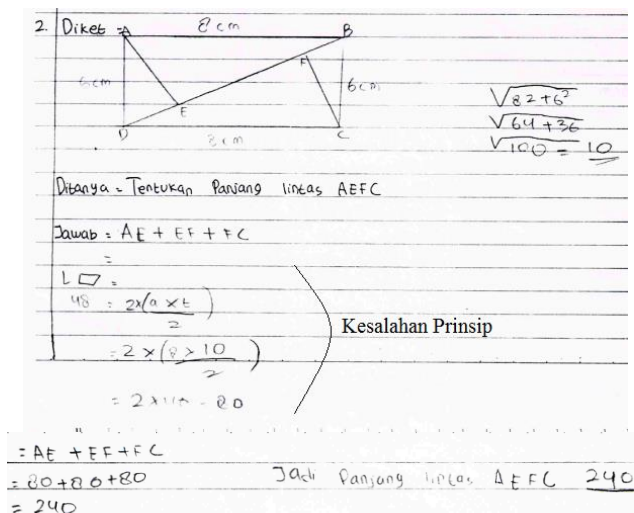 2. Diket =
A 8 cm B
F
6 cm 6 cm
E
D 8 cm C
√82+6²
√64+36
√100 = 10
Ditanya = Tentukan Panjang lintas AEFC
Jawab = AE + EF + FC
=
L ▱ =
48 = 2x(a x t / 2)
= 2 x (8 x 10 / 2)
= 2 x 40 = 80
Kesalahan Prinsip
= AE + EF + FC
= 80 + 80 + 80
= 240
Jadi Panjang lintas AEFC 240